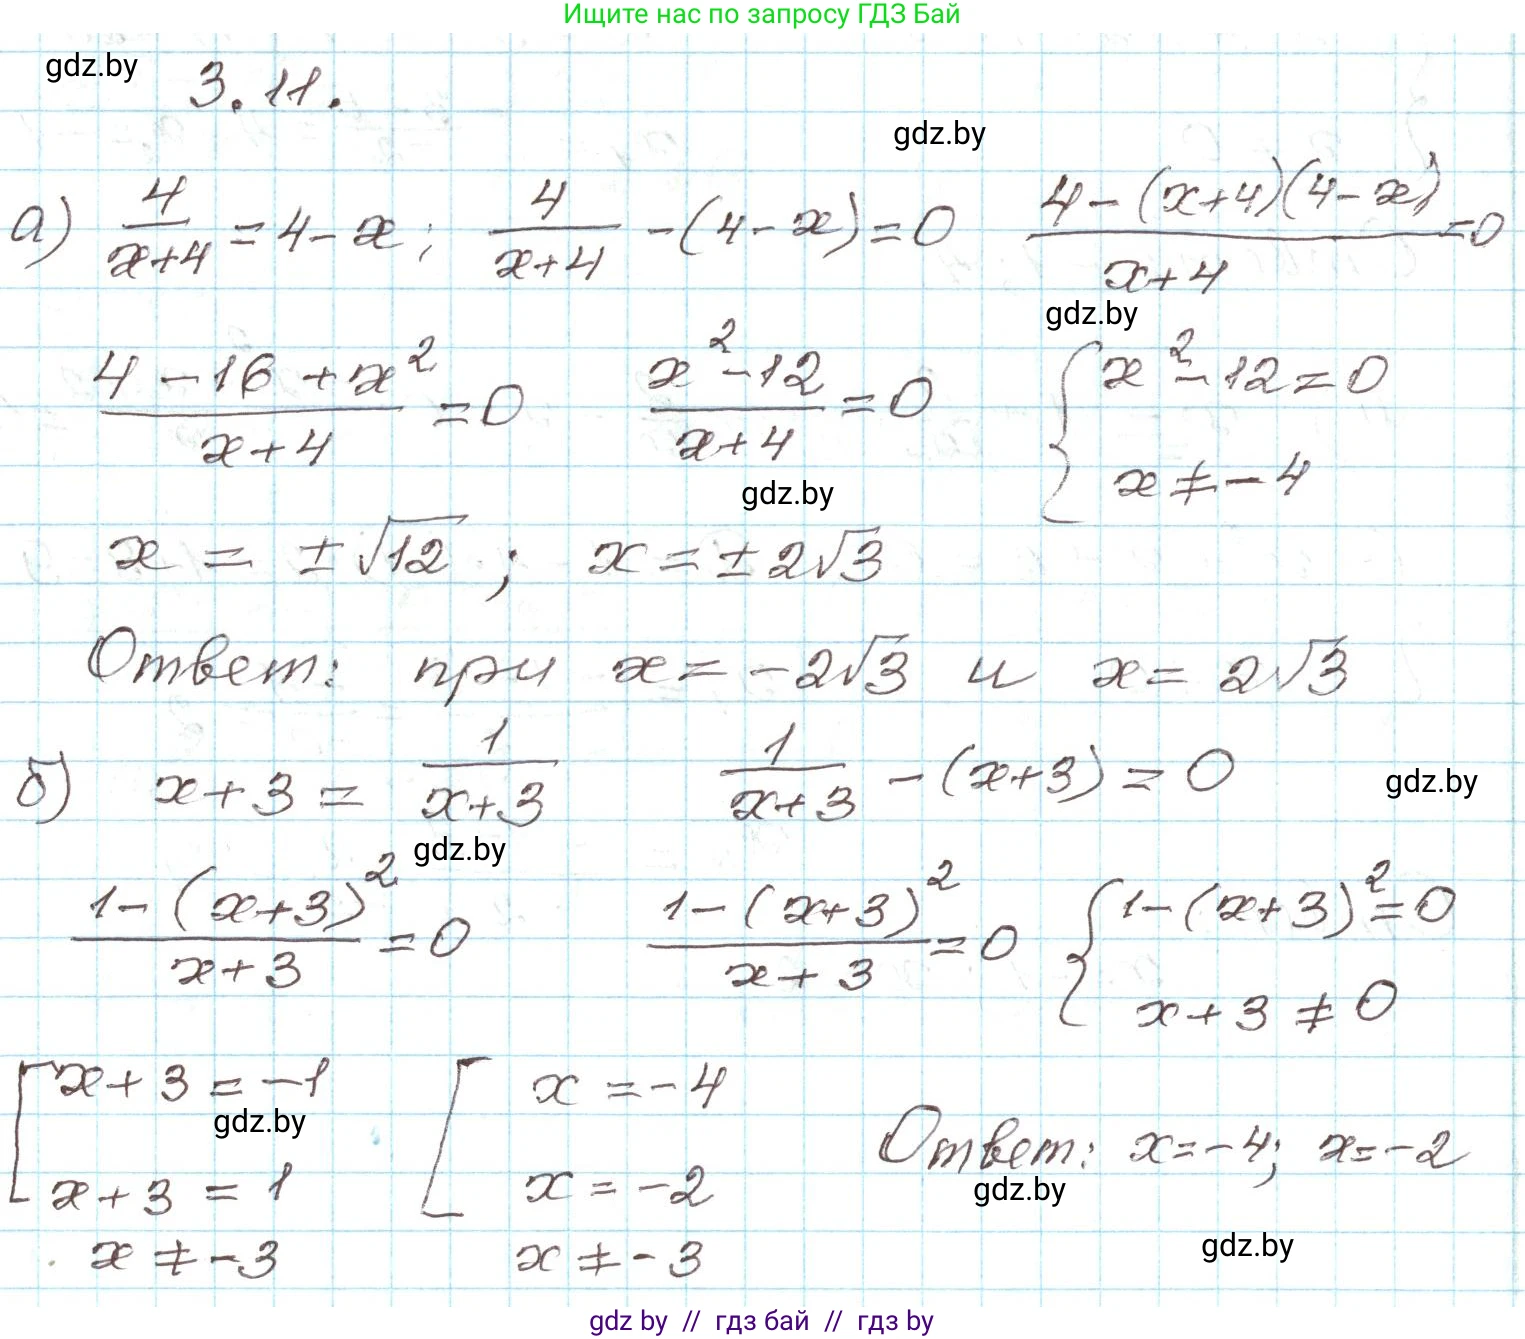 Ищите нас по запросу ГДЗ Бай
gdz.by
3.11.
gdz.by
а) 4/(x+4) = 4-x; 4/(x+4) -(4-x)=0 (4-(x+4)(4-x))/(x+4) =0
gdz.by
(4-16+x²)/(x+4) =0 (x²-12)/(x+4) =0 { x²-12=0
x≠-4
gdz.by
x = ±√12 ; x=±2√3
Ответ: при x=-2√3 и x= 2√3
б) x+3 = 1/(x+3) 1/(x+3) -(x+3)=0
gdz.by
gdz.by
(1-(x+3)²)/(x+3) =0 (1-(x+3)²)/(x+3) =0 { 1-(x+3)²=0
x+3≠0
[ x+3=-1 [ x=-4
gdz.by
Ответ: x=-4; x=-2
x+3=1 x=-2
gdz.by
x≠-3 x≠-3
gdz.by
gdz by // гдз бай // гдз by